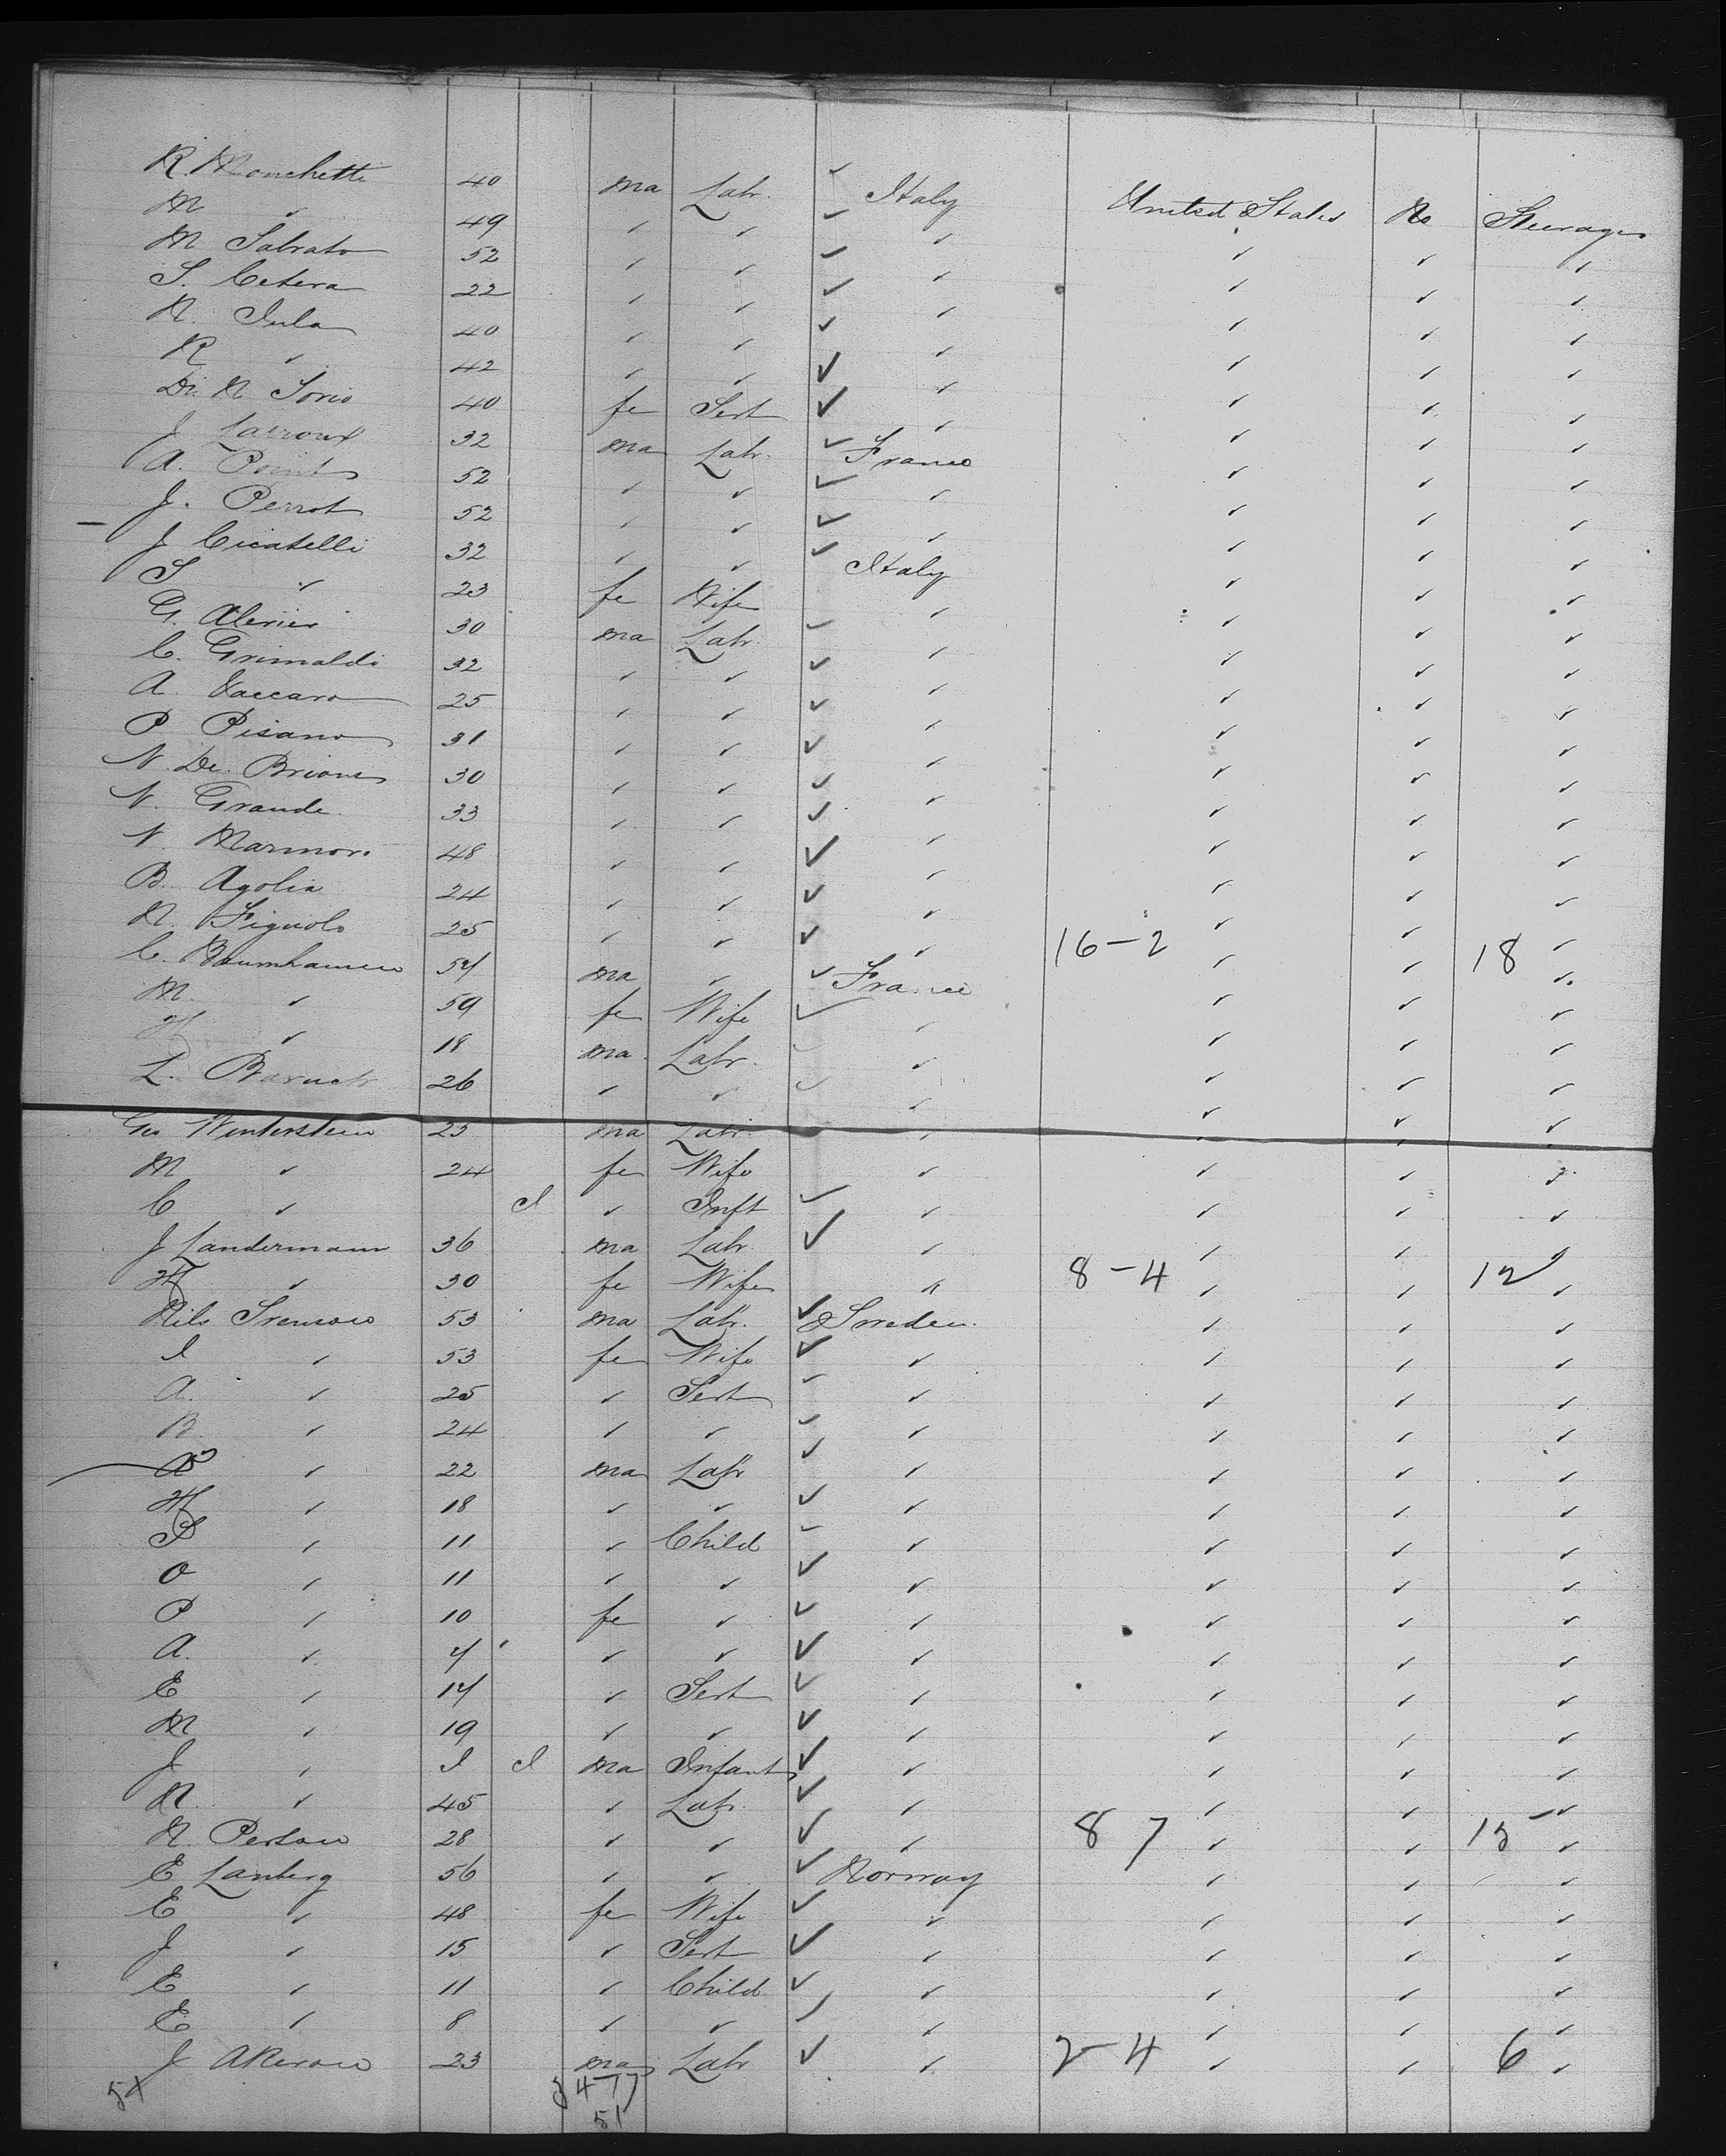 R. Monchetti 40 ma Labr. ✓ Italy United States No Steerage
M ✓ 49 ✓ ✓ ✓ ✓ ✓ ✓ ✓
M Sabrato 52 ✓ ✓ ✓ ✓ ✓ ✓ ✓
S. Cetera 22 ✓ ✓ ✓ ✓ ✓ ✓ ✓
N. Jula 40 ✓ ✓ ✓ ✓ ✓ ✓ ✓
R ✓ 42 ✓ ✓ ✓ ✓ ✓ ✓ ✓
Di N Sorio 40 fe Sert ✓ ✓ ✓ ✓ ✓
J Lacroux 32 ma Labr. ✓ France ✓ ✓ ✓
A. Point 52 ✓ ✓ ✓ ✓ ✓ ✓ ✓
J. Perrot 52 ✓ ✓ ✓ ✓ ✓ ✓ ✓
J Cicatelli 32 ✓ ✓ ✓ Italy ✓ ✓ ✓
S ✓ 23 fe Wife ✓ ✓ ✓ ✓
G. Alerier 30 ma Labr. ✓ ✓ ✓ ✓ ✓
C. Grimaldi 32 ✓ ✓ ✓ ✓ ✓ ✓ ✓
A. Vaccaro 25 ✓ ✓ ✓ ✓ ✓ ✓ ✓
P Pisano 31 ✓ ✓ ✓ ✓ ✓ ✓ ✓
N. De. Brione 30 ✓ ✓ ✓ ✓ ✓ ✓ ✓
N. Grande 33 ✓ ✓ ✓ ✓ ✓ ✓ ✓
N. Marmoro 48 ✓ ✓ ✓ ✓ ✓ ✓ ✓
B. Agolia 24 ✓ ✓ ✓ ✓ ✓ ✓ ✓
N. Fignolo 25 ✓ ✓ ✓ ✓ 16-2 ✓ ✓ 18 ✓
C. 54 ma ✓ ✓ France ✓ ✓ ✓
M. ✓ 59 fe Wife ✓ ✓ ✓ ✓ ✓
H ✓ 18 ma Labr. ✓ ✓ ✓ ✓ ✓
L. Baruch 26 ✓ ✓ ✓ ✓ ✓ ✓ ✓
Geo Winterstein 23 ma Labr. ✓ ✓ ✓ ✓
M ✓ 24 fe Wife ✓ ✓ ✓ ✓
C ✓ I ✓ Inft ✓ ✓ ✓ ✓ ✓
J Landermann 36 ma Labr. ✓ ✓ ✓ ✓ ✓
H ✓ 30 fe Wife ✓ 8-4 ✓ ✓ 12 ✓
Nils Svenson 53 ma Labr. ✓ Sweden. ✓ ✓ ✓
I ✓ 53 fe Wife ✓ ✓ ✓ ✓ ✓
A. ✓ 25 ✓ Sert ✓ ✓ ✓ ✓ ✓
B. ✓ 24 ✓ ✓ ✓ ✓ ✓ ✓ ✓
A ✓ 22 ma Labr ✓ ✓ ✓ ✓ ✓
H ✓ 18 ✓ ✓ ✓ ✓ ✓ ✓ ✓
S ✓ 11 ✓ Child ✓ ✓ ✓ ✓ ✓
O ✓ 11 ✓ ✓ ✓ ✓ ✓ ✓ ✓
P ✓ 10 fe ✓ ✓ ✓ ✓ ✓ ✓
A. ✓ 4 ✓ ✓ ✓ ✓ ✓ ✓ ✓
E ✓ 14 ✓ Sert ✓ ✓ ✓ ✓ ✓
M ✓ 19 ✓ ✓ ✓ ✓ ✓ ✓ ✓
J ✓ I I ma Infant ✓ ✓ ✓ ✓ ✓
N ✓ 45 ✓ Labr. ✓ ✓ ✓ ✓ ✓
N. Person 28 ✓ ✓ ✓ ✓ 8 7 ✓ ✓ 15 ✓
E Lanberg 56 ✓ ✓ ✓ Norway ✓ ✓ ✓
E ✓ 48 fe Wife ✓ ✓ ✓ ✓ ✓
J ✓ 15 ✓ Sert ✓ ✓ ✓ ✓ ✓
E ✓ 11 ✓ Child ✓ ✓ ✓ ✓ ✓
E ✓ 8 ✓ ✓ ✓ ✓ ✓ ✓ ✓
J Akerson 23 ma Labr ✓ ✓ 2-4 ✓ ✓ 6 ✓
51